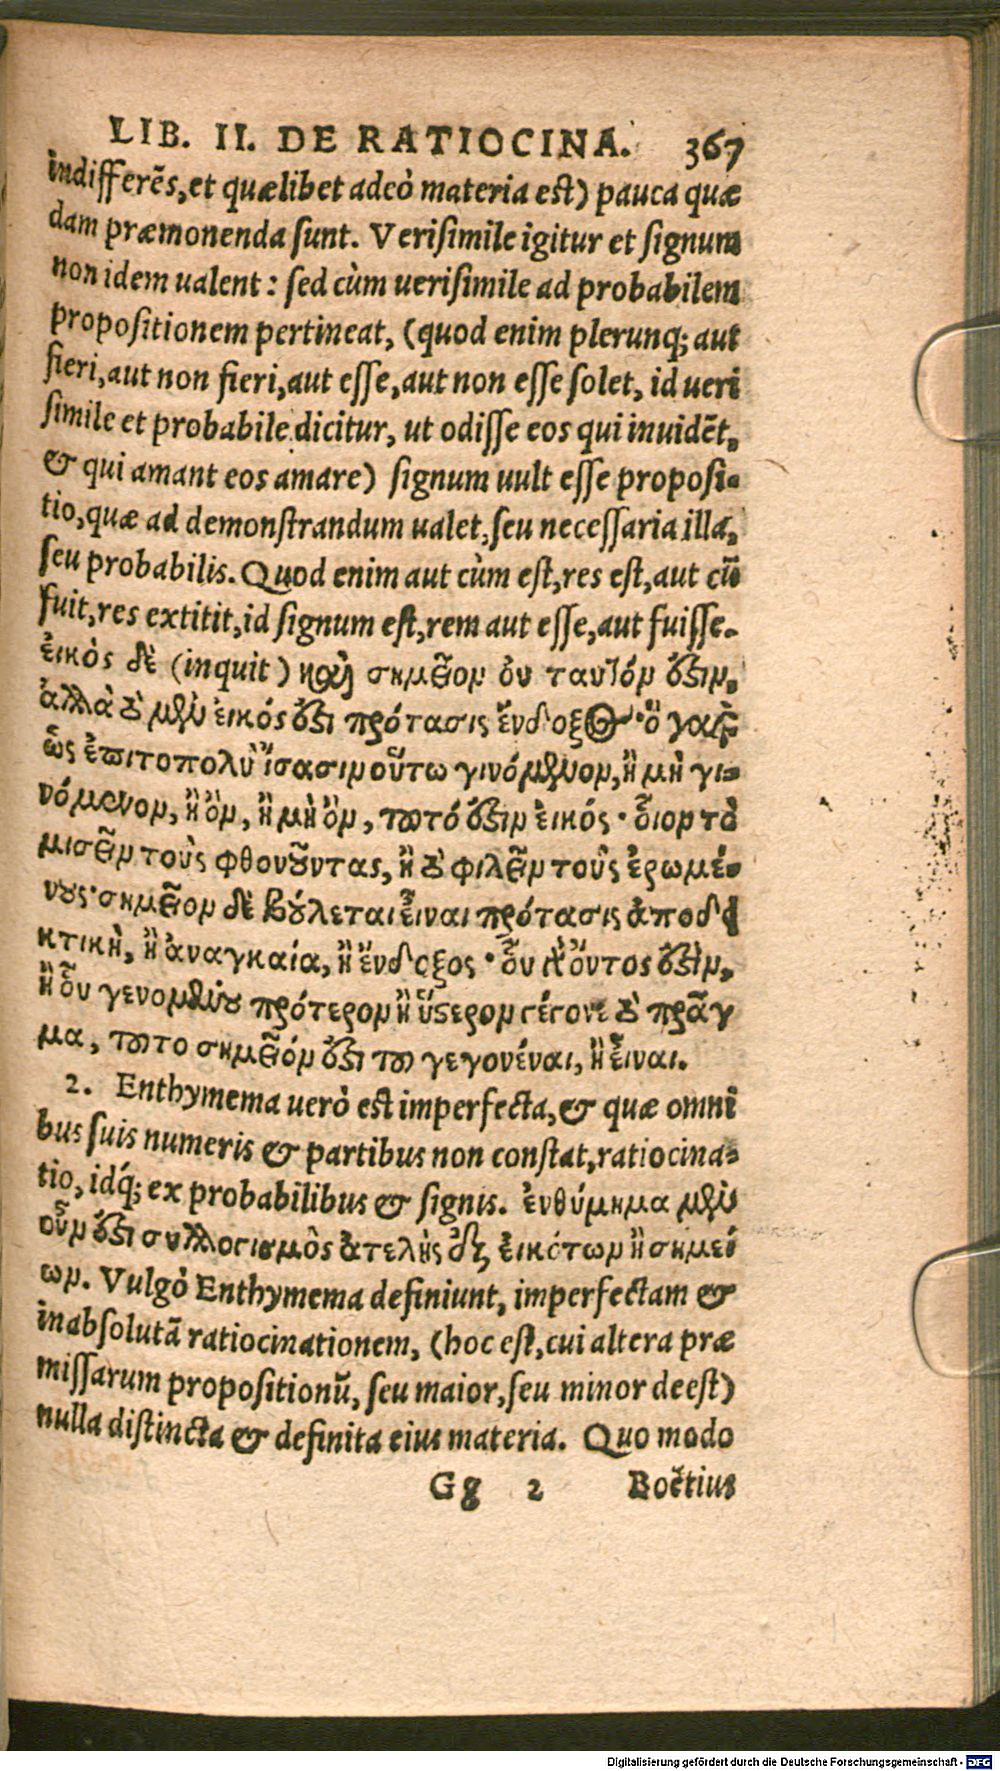 LIB. II. DE RATIOCINA. 367
indifferẽs, et quælibet adeò materia est) pauca quæ
dam præmonenda sunt. Verisimile igitur et signum
non idem ualent: sed cùm uerisimile ad probabilem
propositionem pertineat, (quod enim plerunq; aut
fieri, aut non fieri, aut esse, aut non esse solet, id ueri
simile et probabile dicitur, ut odisse eos qui inuidẽt,
& qui amant eos amare) signum uult esse proposi-
tio, quæ ad demonstrandum ualet, seu necessaria illa,
seu probabilis. Quod enim aut cùm est, res est, aut cũ
fuit, res extitit, id signum est, rem aut esse, aut fuisse.
ἐικὸς δὲ (inquit) καὶ σημεῖον ὀυ ταυτόν ὅξιν,
ἀλλὰ τὸ μὲν ἐικός ὅξι πρότασις ἔνδοξος· ὃ γαρ
ὡς ἐπιτοπολὺ ἴσασιν οὕτω γινόμενον, ἢ μὴ γι-
νόμενον, ἢ ὂν, ἢ μὴ ὂν, τοῦτό ὅξιν ἐικός· οἷον τὸ
μισεῖν τοὺς φθονοῦντας, ἢ τὸ φιλεῖν τοὺς ἐρωμέ-
νους· σημεῖον δὲ βούλεται εἶναι πρότασις ἀποδει
κτικὴ, ἢ ἀναγκαία, ἢ ἔνδοξος· οὗ γὰρ ὄντος ὅξιν,
ἢ οὗ γενομένου πρότερον ἢ ὕστερον γέγονε τὸ πρᾶγ
μα, τοῦτο σημεῖόν ὅξι τοῦ γεγονέναι, ἢ εἶναι.
2. Enthymema uerò est imperfecta, & quæ omni
bus suis numeris & partibus non constat, ratiocina-
tio, idq́; ex probabilibus & signis. ἐνθύμημα μὲν
οὖν ὅξι συλλογισμὸς ἀτελὴς ἐξ ἐικότων ἢ σημεί
ων. Vulgò Enthymema definiunt, imperfectam &
inabsolutã ratiocinationem, (hoc est, cui altera præ
missarum propositionũ, seu maior, seu minor deest)
nulla distincta & definita eius materia. Quo modo
Gg 2 Boëtius
Digitalisierung gefördert durch die Deutsche Forschungsgemeinschaft - DFG